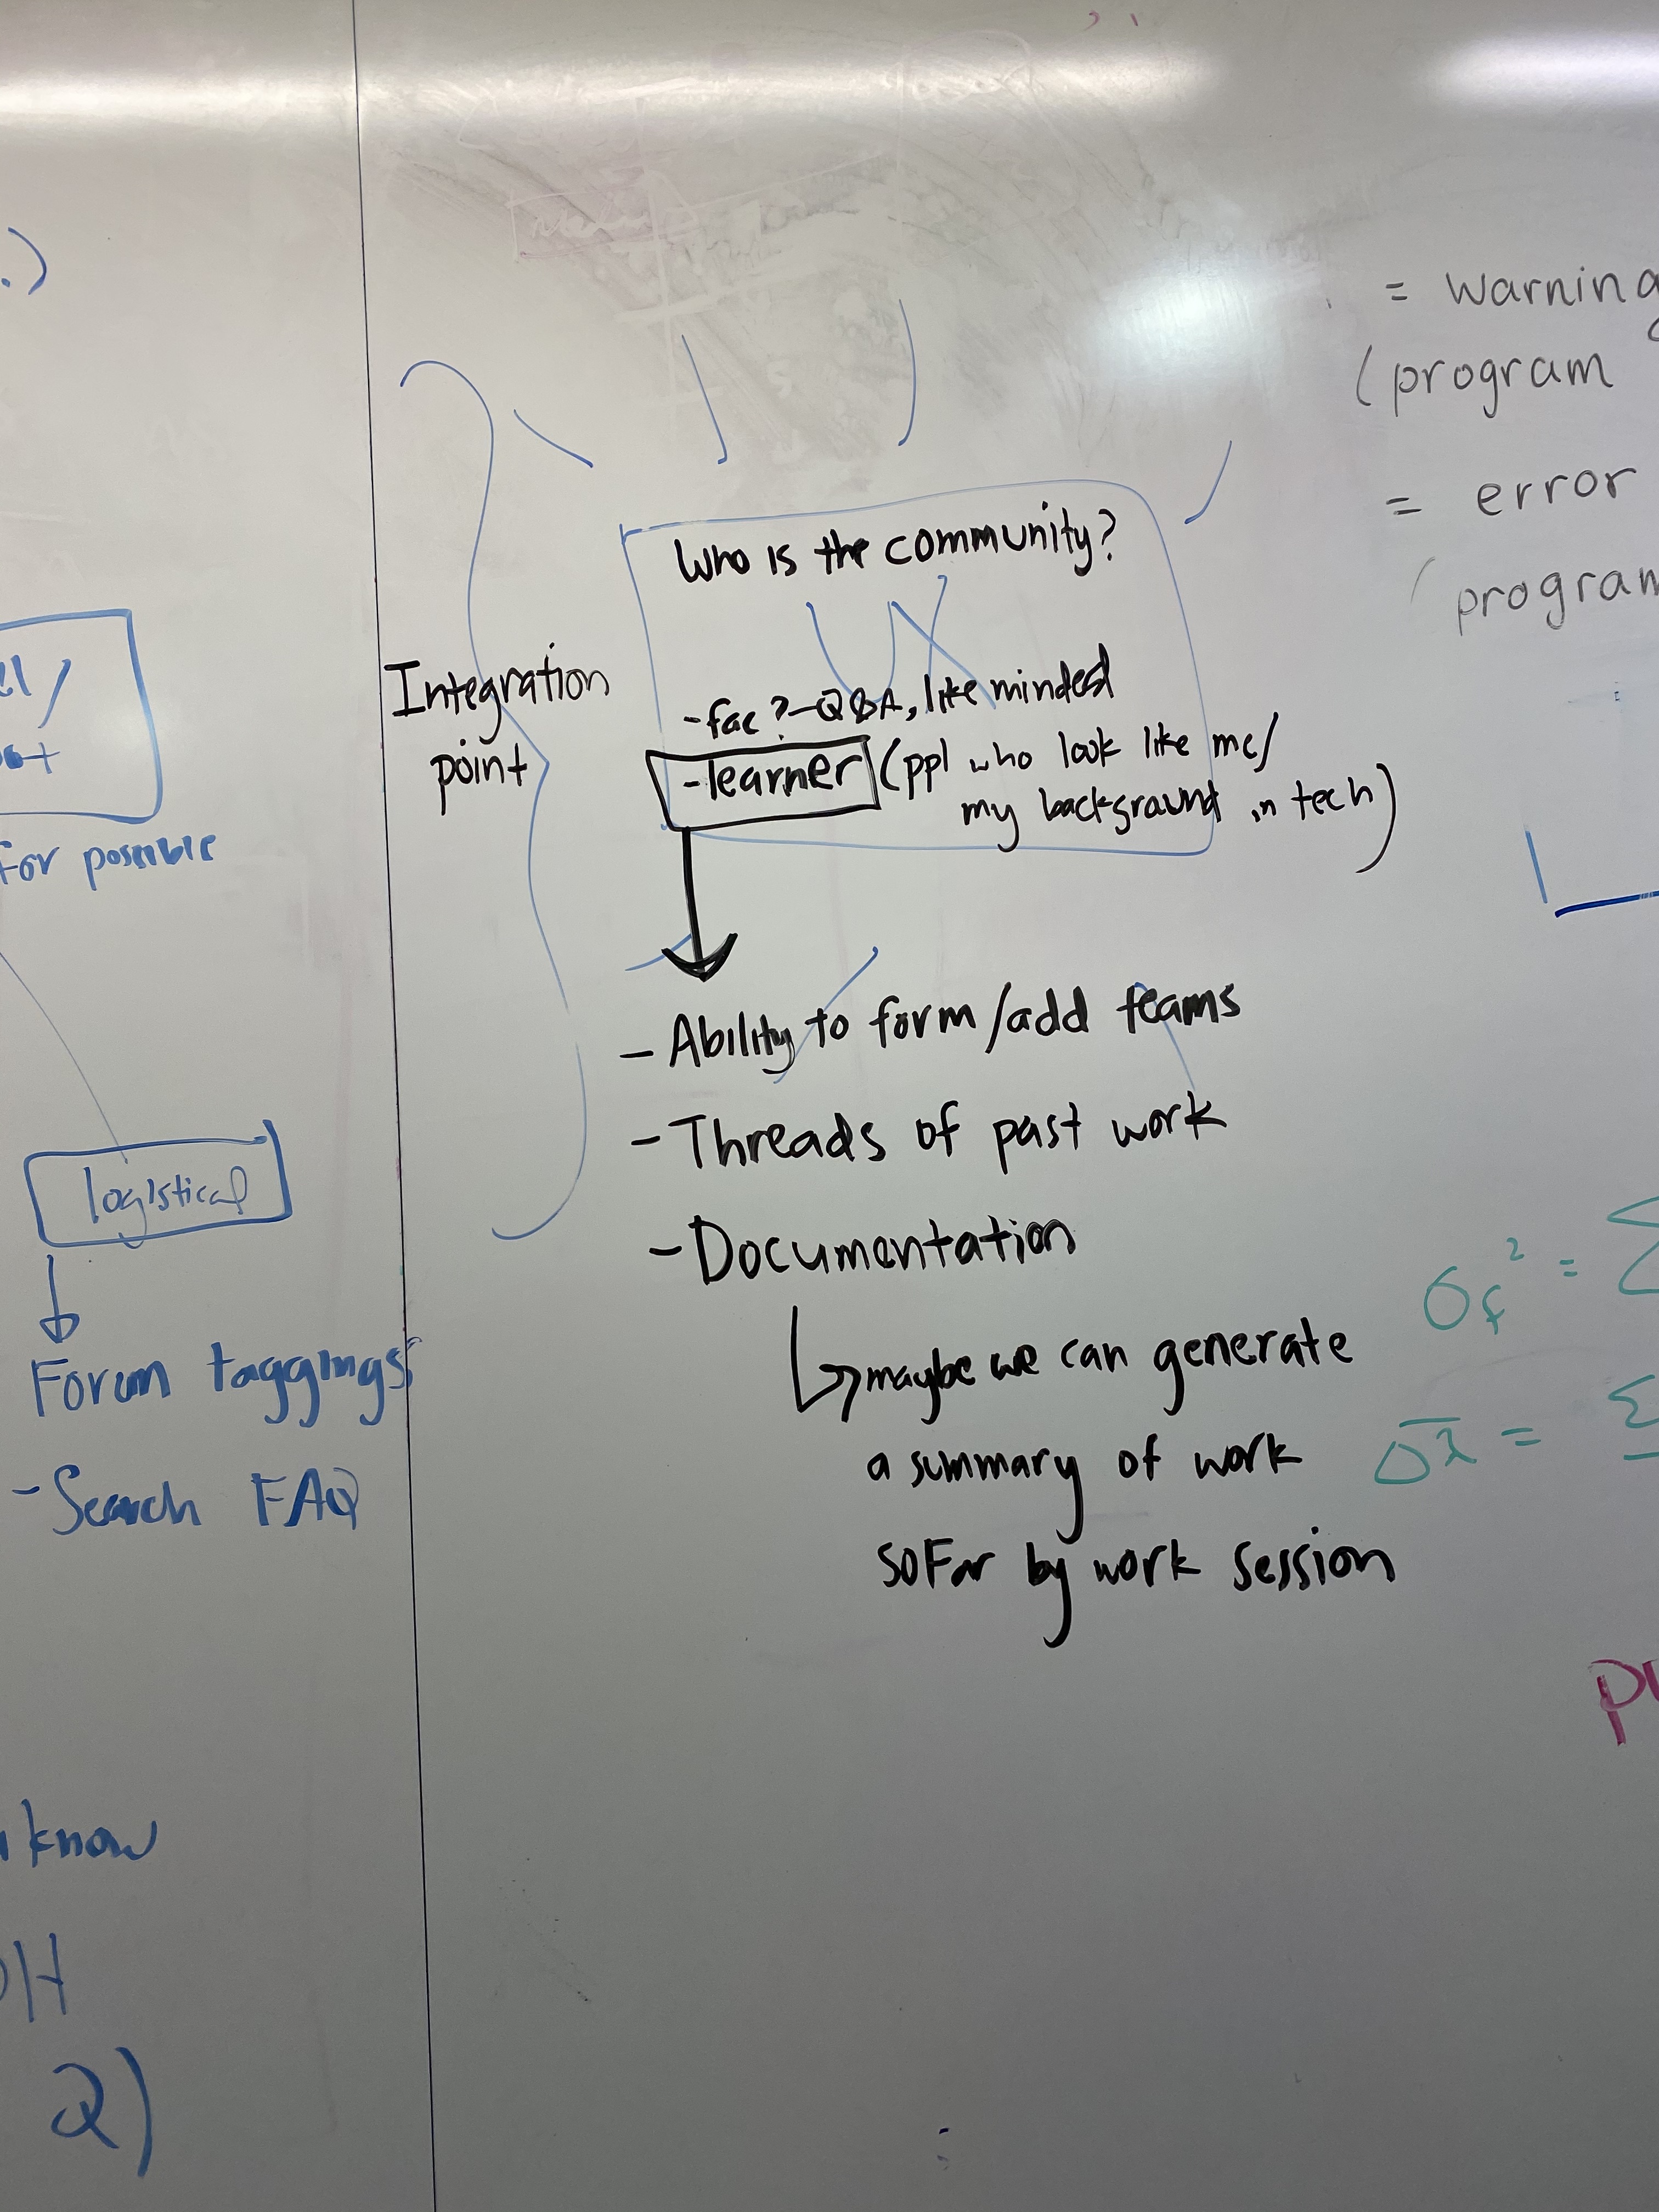 .)
for possible
logistical
Forum taggings
- Search FAQ
know
2)
Integration
point
Who is the community?
- fac? - Q&A, like minded
- learner (ppl who look like me/
my background in tech)
- Ability to form/add teams
- Threads of past work
- Documentation
maybe we can generate
a summary of work
so far by work session
= warning
(program
= error
(program
σ_f² = Σ